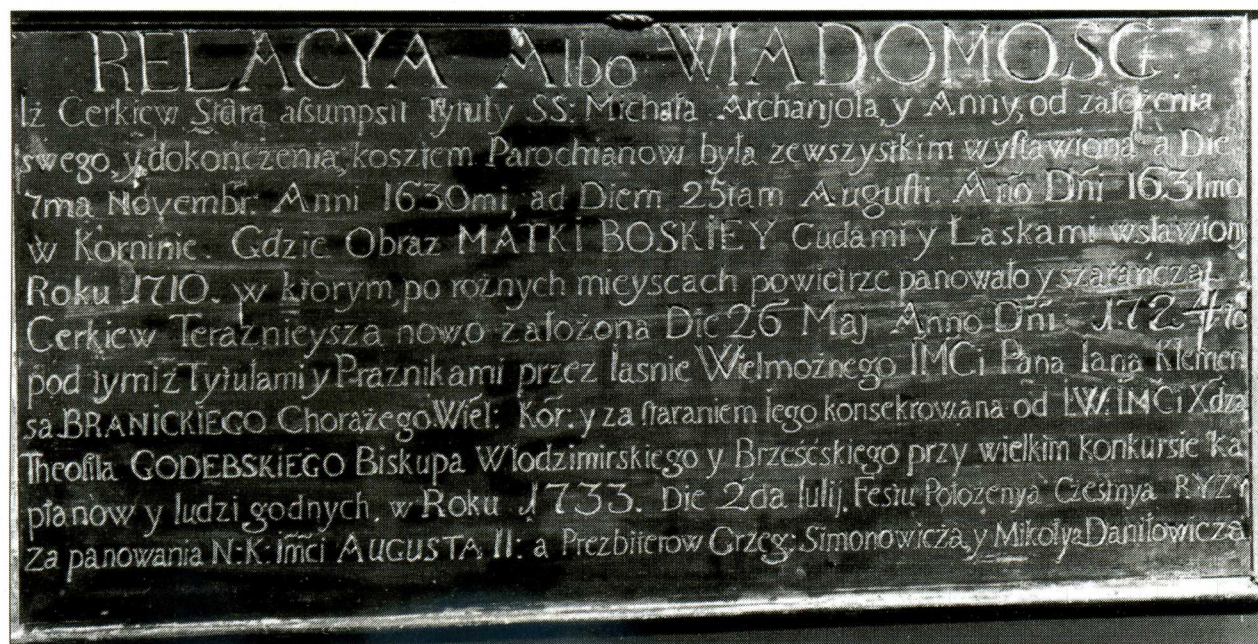 RELACYA Albo WIADOMOSC.
Iż Cerkiew Stara aſsumpsit Tytuły SS: Michała Archanjoła, y Anny, od założenia
swego, y dokończenia, kosztem Parochianow była zewszystkim wyſtawiona à Die
7ma Novembr: Anni 1630mi, ad Diem 25tam Auguſti. Año Dñi 1631mo
w Korninie. Gdzie Obraz MATKI BOSKIEY Cudami y Łaskami wsławiony
Roku 1710. w ktorym, po rożnych mieyscach powietrze panowało y szarańcza
Cerkiew Teraznieysza nowo założona Die 26 Maj Anno Dñi 1724to
pod tymiż Tytułami y Praznikami przez Iasnie Wielmożnego IMCi Pana Iana Klemen
sa BRANICKIEGO Chorążego Wiel: Kor: y za ſtaraniem Iego konsekrowana od I.W. IMCi Xdza
Theofila GODEBSKIEGO Biskupa Włodzimirskiego y Brześćskiego przy wielkim konkursie ka
płanow y ludzi godnych. w Roku 1733. Die 2da Iulij. Festu Połozenya Czestnya RYZY
Za panowania N: K: Imći AUGUSTA II: a Prezbiterow Grzeg: Simonowicża, y Mikołya Daniłowicża